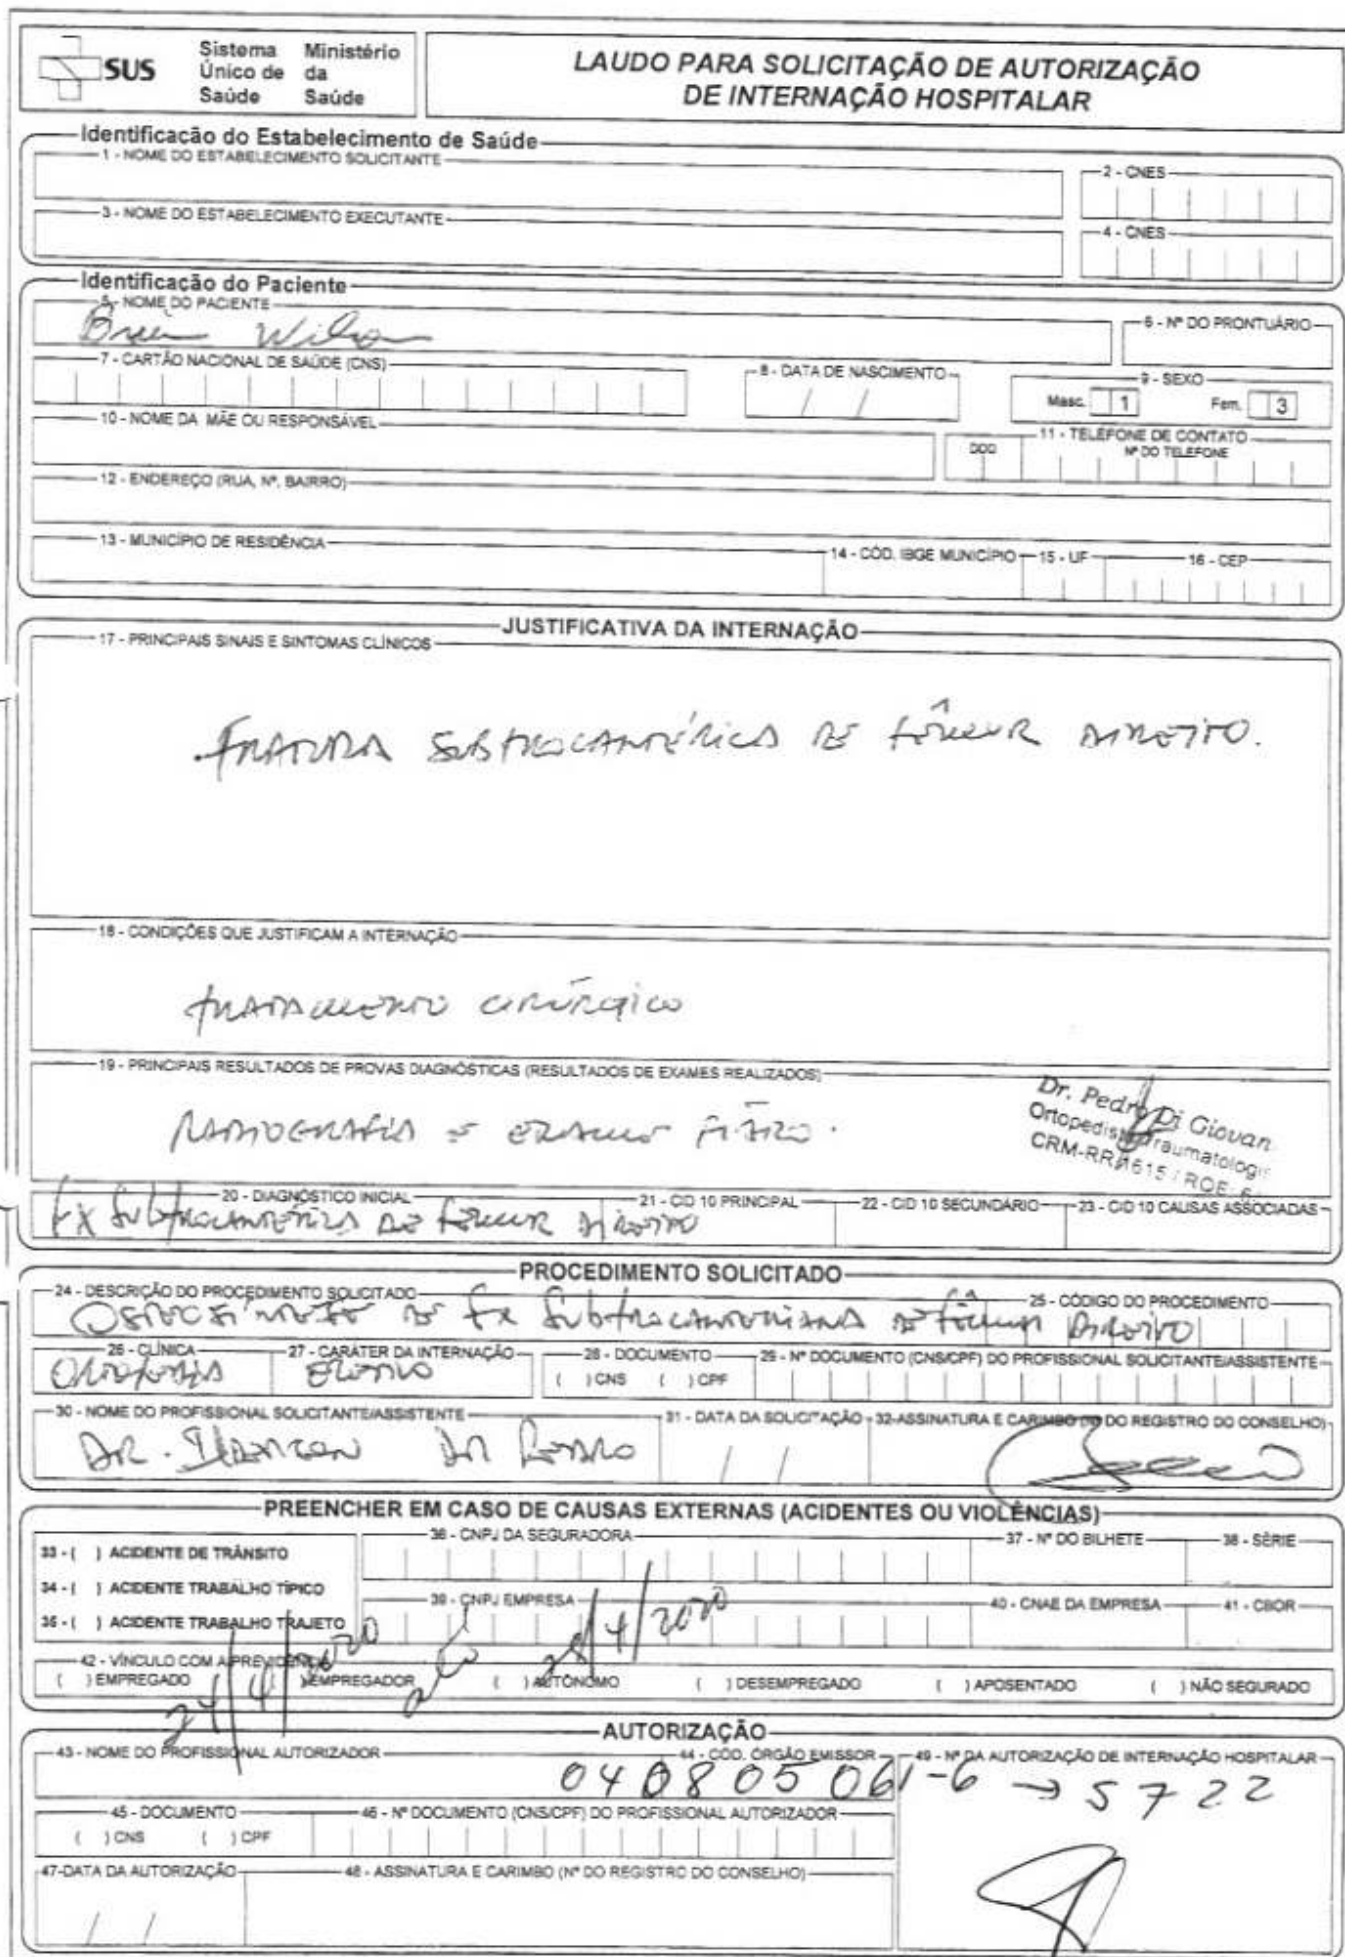 SUS
Sistema Único de Saúde
Ministério da Saúde
LAUDO PARA SOLICITAÇÃO DE AUTORIZAÇÃO
DE INTERNAÇÃO HOSPITALAR
Identificação do Estabelecimento de Saúde
1 - NOME DO ESTABELECIMENTO SOLICITANTE
2 - CNES
3 - NOME DO ESTABELECIMENTO EXECUTANTE
4 - CNES
Identificação do Paciente
5 - NOME DO PACIENTE
6 - Nº DO PRONTUÁRIO
Wilson
7 - CARTÃO NACIONAL DE SAÚDE (CNS)
8 - DATA DE NASCIMENTO
/ /
9 - SEXO
Masc. 1 Fem. 3
10 - NOME DA MÃE OU RESPONSÁVEL
11 - TELEFONE DE CONTATO
DDD Nº DO TELEFONE
12 - ENDEREÇO (RUA, Nº, BAIRRO)
13 - MUNICÍPIO DE RESIDÊNCIA
14 - CÓD. IBGE MUNICÍPIO
15 - UF
16 - CEP
JUSTIFICATIVA DA INTERNAÇÃO
17 - PRINCIPAIS SINAIS E SINTOMAS CLÍNICOS
FRATURA SUBTROCANTÉRICA DE FÊMUR DIREITO.
18 - CONDIÇÕES QUE JUSTIFICAM A INTERNAÇÃO
TRATAMENTO CIRÚRGICO
19 - PRINCIPAIS RESULTADOS DE PROVAS DIAGNÓSTICAS (RESULTADOS DE EXAMES REALIZADOS)
RADIOGRAFIA E EXAME FÍSICO.
Dr. Pedro Di Giovan
Ortopedista Traumatologi
CRM-RR 1615 / RQE
20 - DIAGNÓSTICO INICIAL
21 - CID 10 PRINCIPAL
22 - CID 10 SECUNDÁRIO
23 - CID 10 CAUSAS ASSOCIADAS
FX SUBTROCANTÉRICA DE FÊMUR DIREITO
PROCEDIMENTO SOLICITADO
24 - DESCRIÇÃO DO PROCEDIMENTO SOLICITADO
25 - CÓDIGO DO PROCEDIMENTO
OSTEOSSÍNTESE DE FX SUBTROCANTERIANA DE FÊMUR DIREITO
26 - CLÍNICA
27 - CARÁTER DA INTERNAÇÃO
28 - DOCUMENTO
29 - Nº DOCUMENTO (CNS/CPF) DO PROFISSIONAL SOLICITANTE/ASSISTENTE
ORTOPEDIA
ELETIVO
( ) CNS ( ) CPF
30 - NOME DO PROFISSIONAL SOLICITANTE/ASSISTENTE
31 - DATA DA SOLICITAÇÃO
32-ASSINATURA E CARIMBO (Nº DO REGISTRO DO CONSELHO)
DR.
/ /
PREENCHER EM CASO DE CAUSAS EXTERNAS (ACIDENTES OU VIOLÊNCIAS)
33 - ( ) ACIDENTE DE TRÂNSITO
36 - CNPJ DA SEGURADORA
37 - Nº DO BILHETE
38 - SÉRIE
34 - ( ) ACIDENTE TRABALHO TÍPICO
39 - CNPJ EMPRESA
40 - CNAE DA EMPRESA
41 - CBOR
35 - ( ) ACIDENTE TRABALHO TRAJETO
24/4/2020 até 28/4/2020
42 - VÍNCULO COM A PREVIDÊNCIA
( ) EMPREGADO ( ) EMPREGADOR ( ) AUTÔNOMO ( ) DESEMPREGADO ( ) APOSENTADO ( ) NÃO SEGURADO
AUTORIZAÇÃO
43 - NOME DO PROFISSIONAL AUTORIZADOR
44 - CÓD. ÓRGÃO EMISSOR
49 - Nº DA AUTORIZAÇÃO DE INTERNAÇÃO HOSPITALAR
040805061-6 → S722
45 - DOCUMENTO
46 - Nº DOCUMENTO (CNS/CPF) DO PROFISSIONAL AUTORIZADOR
( ) CNS ( ) CPF
47-DATA DA AUTORIZAÇÃO
48 - ASSINATURA E CARIMBO (Nº DO REGISTRO DO CONSELHO)
/ /